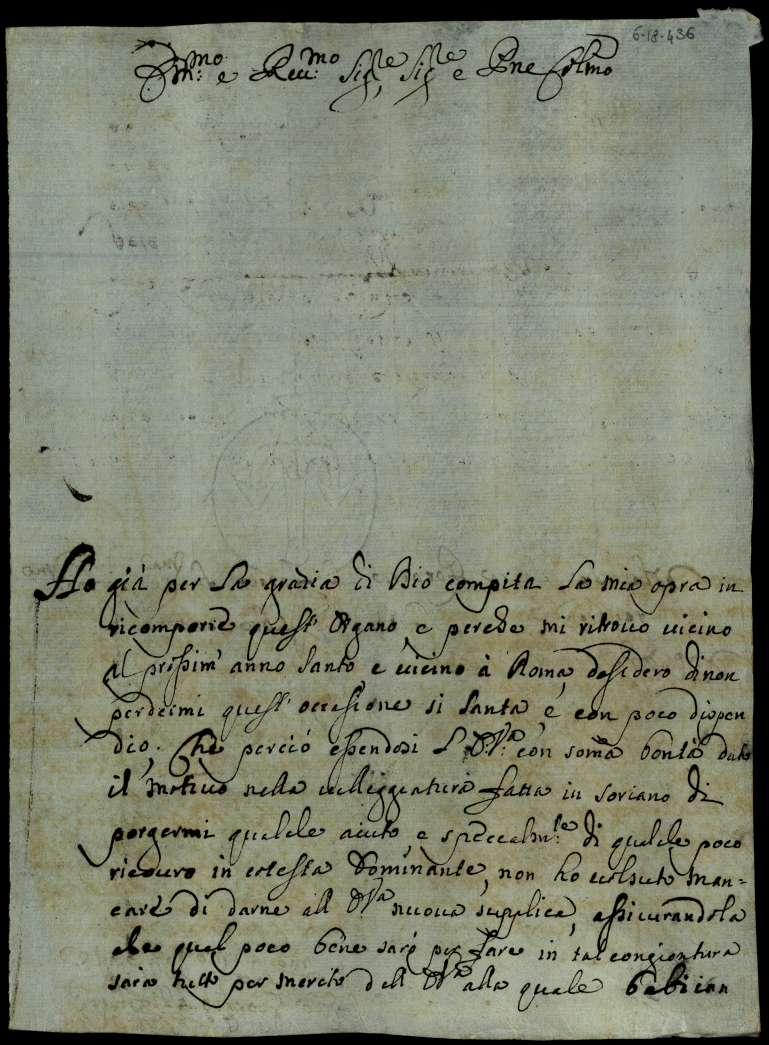 6·18·436
Ill.mo e Rev.mo Sig.re Sig.re e Pne Col.mo
Ho già per la gratia di Dio compita la mia opra in
ricomporre quest' Organo e perche mi ritrovo vicino
al prossim' anno Santo, e vicino à Roma, desidero di non
perdermi quest' occasione si Santa, e con poco dispen
dio, Che perciò essendosi V.S. Ill.ma con somma bontà dato
il motivo nella villeggiatura fatta in Soriano di
porgermi qualche aiuto, e spécealm.te di qualche poco
ricovro in cotesta Dominante, non ho volsuto man=
care di darne all V.S. nuova supplica, assicurandola
che quel poco bene sarò per fare in tal congiontura
sarà tutto per merito dell V.S. alla quale